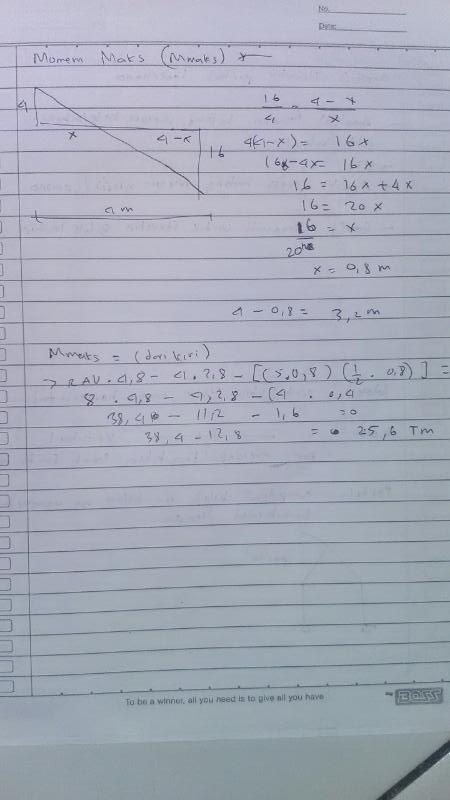 No.
Date:
Momem Maks (Mmaks)
4
x
4-x
16
4 m
16/4 = 4 - x/x
4(4-x) = 16x
16x-4x= 16x
16 = 16x + 4x
16 = 20 x
16/20 = x
x = 0,8 m
4 - 0,8 = 3,2 m
Mmaks = (dari kiri)
→ RAV . 4,8 - 4 . 2,8 - [(5.0,8) (1/2 . 0,8)] =
8 . 4,8 - 4,2,8 - [4 . 0,4
38,4 - 11,2 - 1,6 =0
38,4 - 12,8 = 25,6 Tm
To be a winner, all you need is to give all you have
BOSS